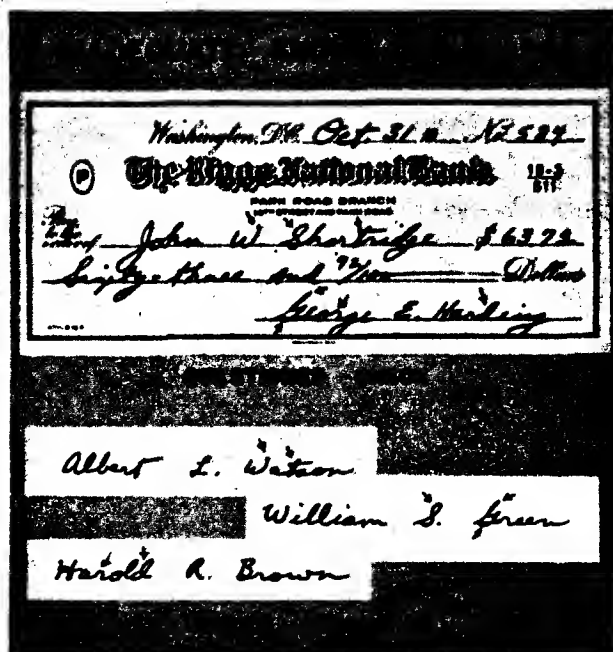 Washington, D.C. Oct. 31 19 No 524
The Riggs National Bank 15-3
PARK ROAD BRANCH 511
14TH STREET AND PARK ROAD
Pay to the order of John W Shortridge $63 72
Sixty-three and 72/100 Dollars
George E. Harding
Albert L. Watson
William S. Green
Harold R. Brown